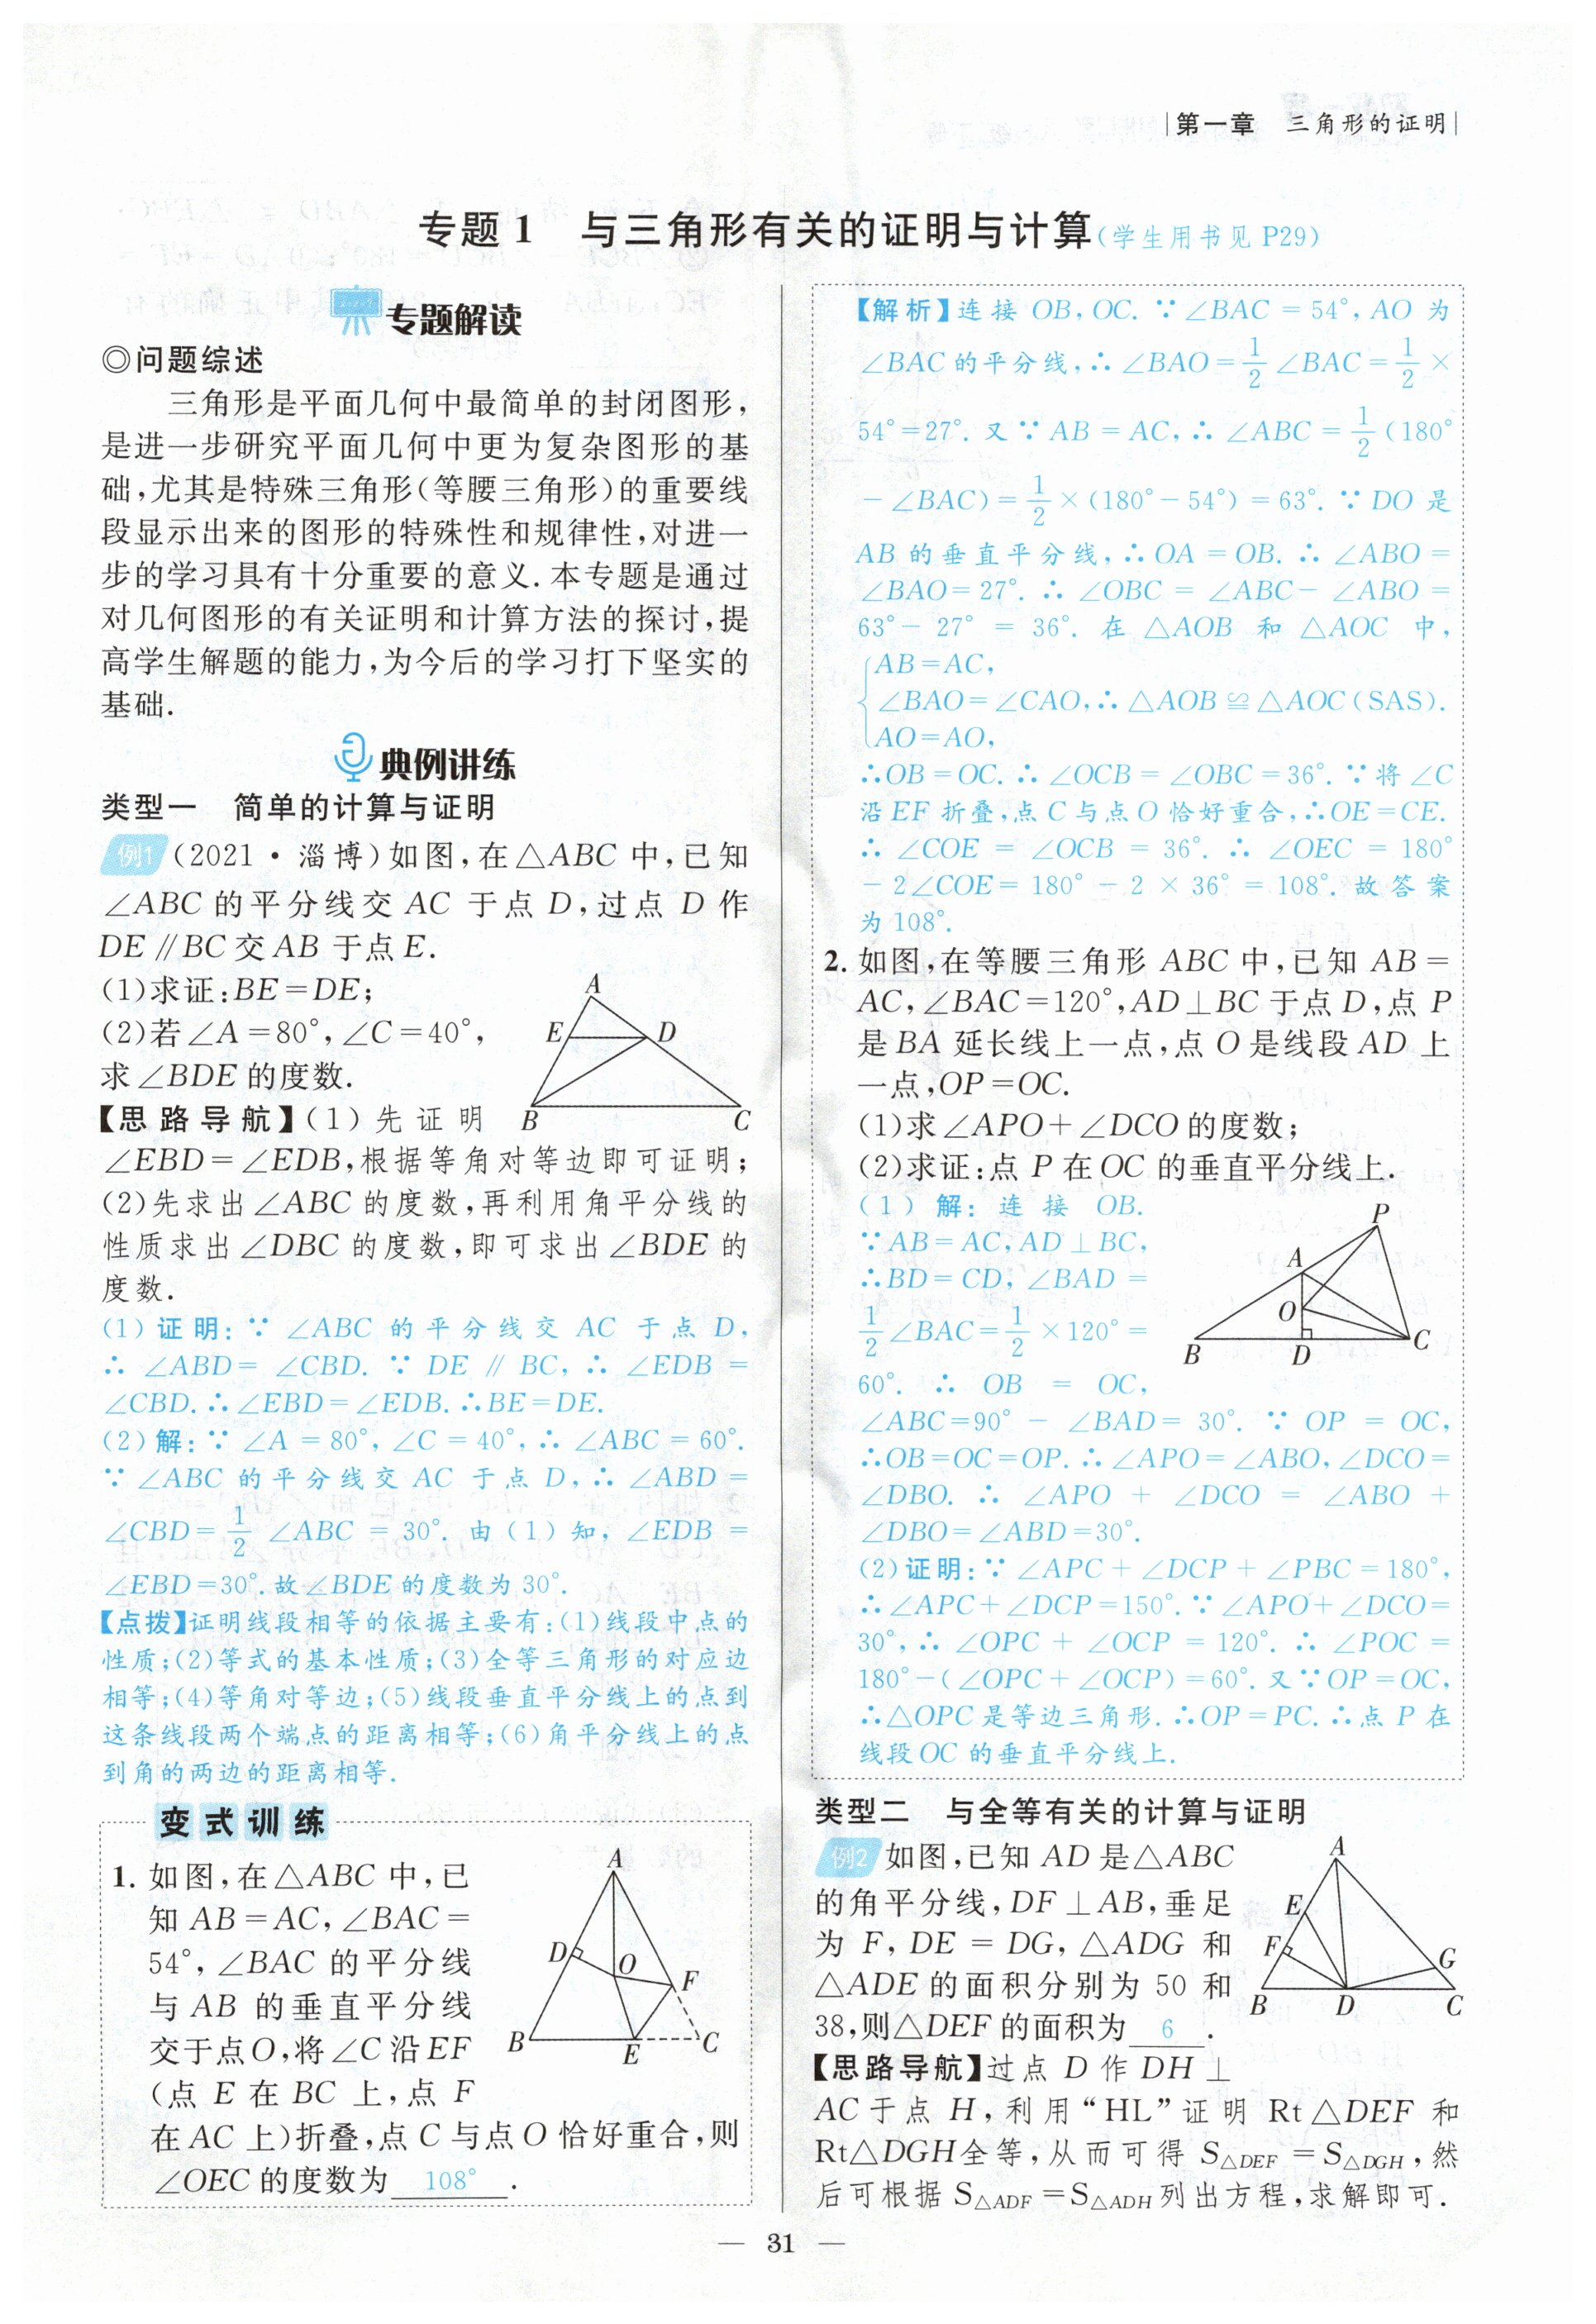 第一章 三角形的证明
专题1 与三角形有关的证明与计算(学生用书见 P29)
专题解读
◎问题综述
三角形是平面几何中最简单的封闭图形,
是进一步研究平面几何中更为复杂图形的基
础,尤其是特殊三角形(等腰三角形)的重要线
段显示出来的图形的特殊性和规律性,对进一
步的学习具有十分重要的意义.本专题是通过
对几何图形的有关证明和计算方法的探讨,提
高学生解题的能力,为今后的学习打下坚实的
基础.
典例讲练
类型一 简单的计算与证明
例1 (2021·淄博)如图,在△ABC 中,已知
∠ABC 的平分线交 AC 于点 D,过点 D 作
DE∥BC 交 AB 于点 E.
(1)求证:BE=DE;
(2)若∠A=80°,∠C=40°,
求∠BDE 的度数.
A
E
D
B
C
【思路导航】(1)先证明
∠EBD=∠EDB,根据等角对等边即可证明;
(2)先求出∠ABC 的度数,再利用角平分线的
性质求出∠DBC 的度数,即可求出∠BDE 的
度数.
(1)证明:∵∠ABC 的平分线交 AC 于点 D,
∴∠ABD=∠CBD.∵DE∥BC,∴∠EDB=
∠CBD.∴∠EBD=∠EDB.∴BE=DE.
(2)解:∵∠A=80°,∠C=40°,∴∠ABC=60°.
∵∠ABC 的平分线交 AC 于点 D,∴∠ABD=
∠CBD=1/2∠ABC=30°.由(1)知,∠EDB=
∠EBD=30°.故∠BDE 的度数为 30°.
【点拨】证明线段相等的依据主要有:(1)线段中点的
性质;(2)等式的基本性质;(3)全等三角形的对应边
相等;(4)等角对等边;(5)线段垂直平分线上的点到
这条线段两个端点的距离相等;(6)角平分线上的点
到角的两边的距离相等.
变式训练
1. 如图,在△ABC 中,已
知 AB=AC,∠BAC=
54°,∠BAC 的平分线
与 AB 的垂直平分线
交于点O,将∠C 沿 EF
(点 E 在 BC 上,点 F
在 AC 上)折叠,点 C 与点 O 恰好重合,则
∠OEC 的度数为 108° .
A
D
O
F
B
E
C
【解析】连接 OB,OC.∵∠BAC=54°,AO 为
∠BAC 的平分线,∴∠BAO=1/2∠BAC=1/2×
54°=27°.又∵AB=AC,∴∠ABC=1/2(180°
-∠BAC)=1/2×(180°-54°)=63°.∵DO 是
AB 的垂直平分线,∴OA=OB.∴∠ABO=
∠BAO=27°.∴∠OBC=∠ABC-∠ABO=
63°-27°=36°.在△AOB 和△AOC 中,
AB=AC,
∠BAO=∠CAO,∴△AOB≌△AOC(SAS).
AO=AO,
∴OB=OC.∴∠OCB=∠OBC=36°.∵将∠C
沿 EF 折叠,点 C 与点 O 恰好重合,∴OE=CE.
∴∠COE=∠OCB=36°.∴∠OEC=180°
-2∠COE=180°-2×36°=108°.故答案
为 108°.
2. 如图,在等腰三角形 ABC 中,已知 AB=
AC,∠BAC=120°,AD⊥BC 于点 D,点 P
是 BA 延长线上一点,点 O 是线段 AD 上
一点,OP=OC.
(1)求∠APO+∠DCO 的度数;
(2)求证:点 P 在 OC 的垂直平分线上.
(1)解:连接 OB.
∵AB=AC,AD⊥BC,
∴BD=CD,∠BAD=
1/2∠BAC=1/2×120°=
60°.∴OB=OC,
P
A
O
B
D
C
∠ABC=90°-∠BAD=30°.∵OP=OC,
∴OB=OC=OP.∴∠APO=∠ABO,∠DCO=
∠DBO.∴∠APO+∠DCO=∠ABO+
∠DBO=∠ABD=30°.
(2)证明:∵∠APC+∠DCP+∠PBC=180°,
∴∠APC+∠DCP=150°.∵∠APO+∠DCO=
30°,∴∠OPC+∠OCP=120°.∴∠POC=
180°-(∠OPC+∠OCP)=60°.又∵OP=OC,
∴△OPC 是等边三角形.∴OP=PC.∴点 P 在
线段 OC 的垂直平分线上.
类型二 与全等有关的计算与证明
例2 如图,已知 AD 是△ABC
的角平分线,DF⊥AB,垂足
为 F,DE=DG,△ADG 和
△ADE 的面积分别为 50 和
38,则△DEF 的面积为 6 .
A
E
F
G
B
D
C
【思路导航】过点 D 作 DH⊥
AC 于点 H,利用“HL”证明 Rt△DEF 和
Rt△DGH全等,从而可得 S△DEF=S△DGH,然
后可根据 S△ADF=S△ADH列出方程,求解即可.
— 31 —